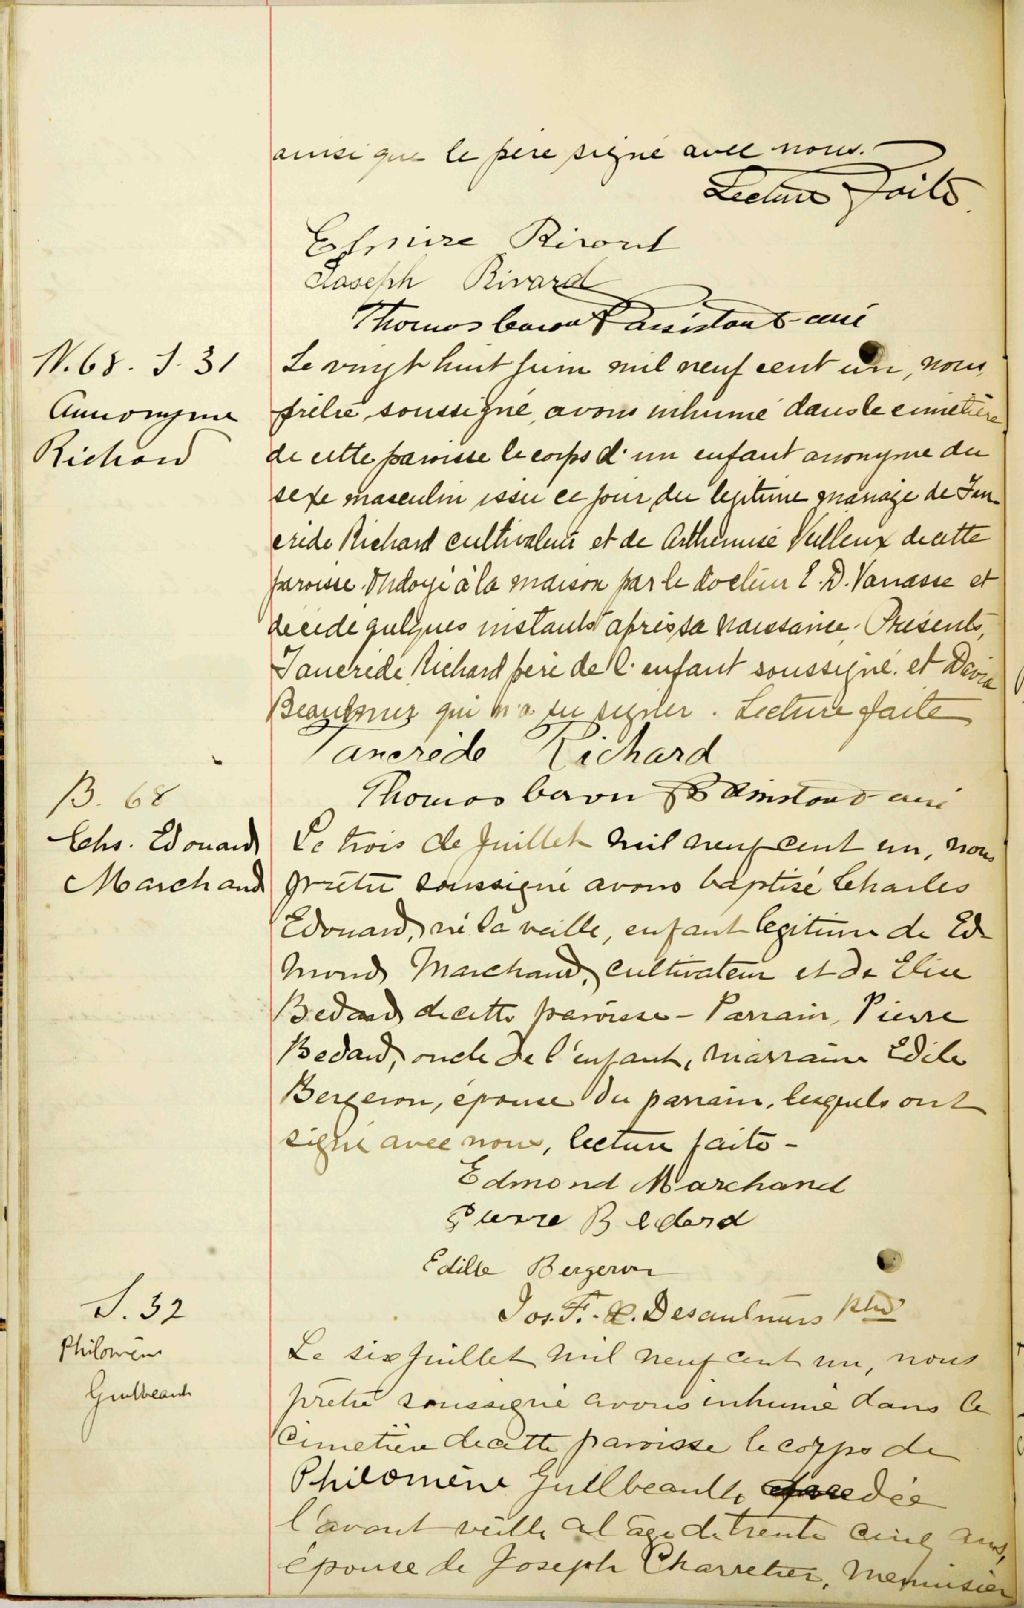 ainsi que le père signé avec nous.
Lecture faite.
Elmire Rivard
Joseph Rivard
Thomas Caron Ptre assistant-curé
N. 68. S. 31
Annonyme
Richard
Le vingt huit juin mil neuf cent un, nous
prêtre soussigné, avons inhumé dans le cimetière
de cette paroisse le corps d'un enfant anonyme du
sexe masculin issu ce jour du legitime mariage de Tan-
crède Richard cultivateur et de Arthemise Veilleux de cette
paroisse. Ondoyé à la maison par le docteur E. D. Vanasse et
décédé quelques instants après sa naissance. Présents,
Tancrède Richard père de l'enfant soussigné. et David
qui n'a su signer. Lecture faite
Tancrède Richard
Thomas Caron Ptre assistant curé
B. 68
Chs. Edouard
Marchand
Le trois de Juillet mil neuf cent un, nous
prêtre soussigné avons baptisé Charles
Edouard, né la veille, enfant legitime de Ed-
mond Marchand, cultivateur et de Elise
Bedard de cette paroisse - Parrain, Pierre
Bedard, oncle de l'enfant, marraine Edile
Bergeron, épouse du parrain, lesquels ont
signé avec nous, lecture faite -
Edmond Marchand
Pierre Bedard
Edille Bergeron
Jos. F. X. Desaulniers ptre
S. 32
Philomène
Guilbeault
Le six Juillet mil neuf cent un, nous
prêtre soussigné avons inhumé dans le
cimetière de cette paroisse le corps de
Philomène Guilbeault, dée
l'avant veille a l'age de trente cinq ans,
épouse de Joseph Charretier, menuisier